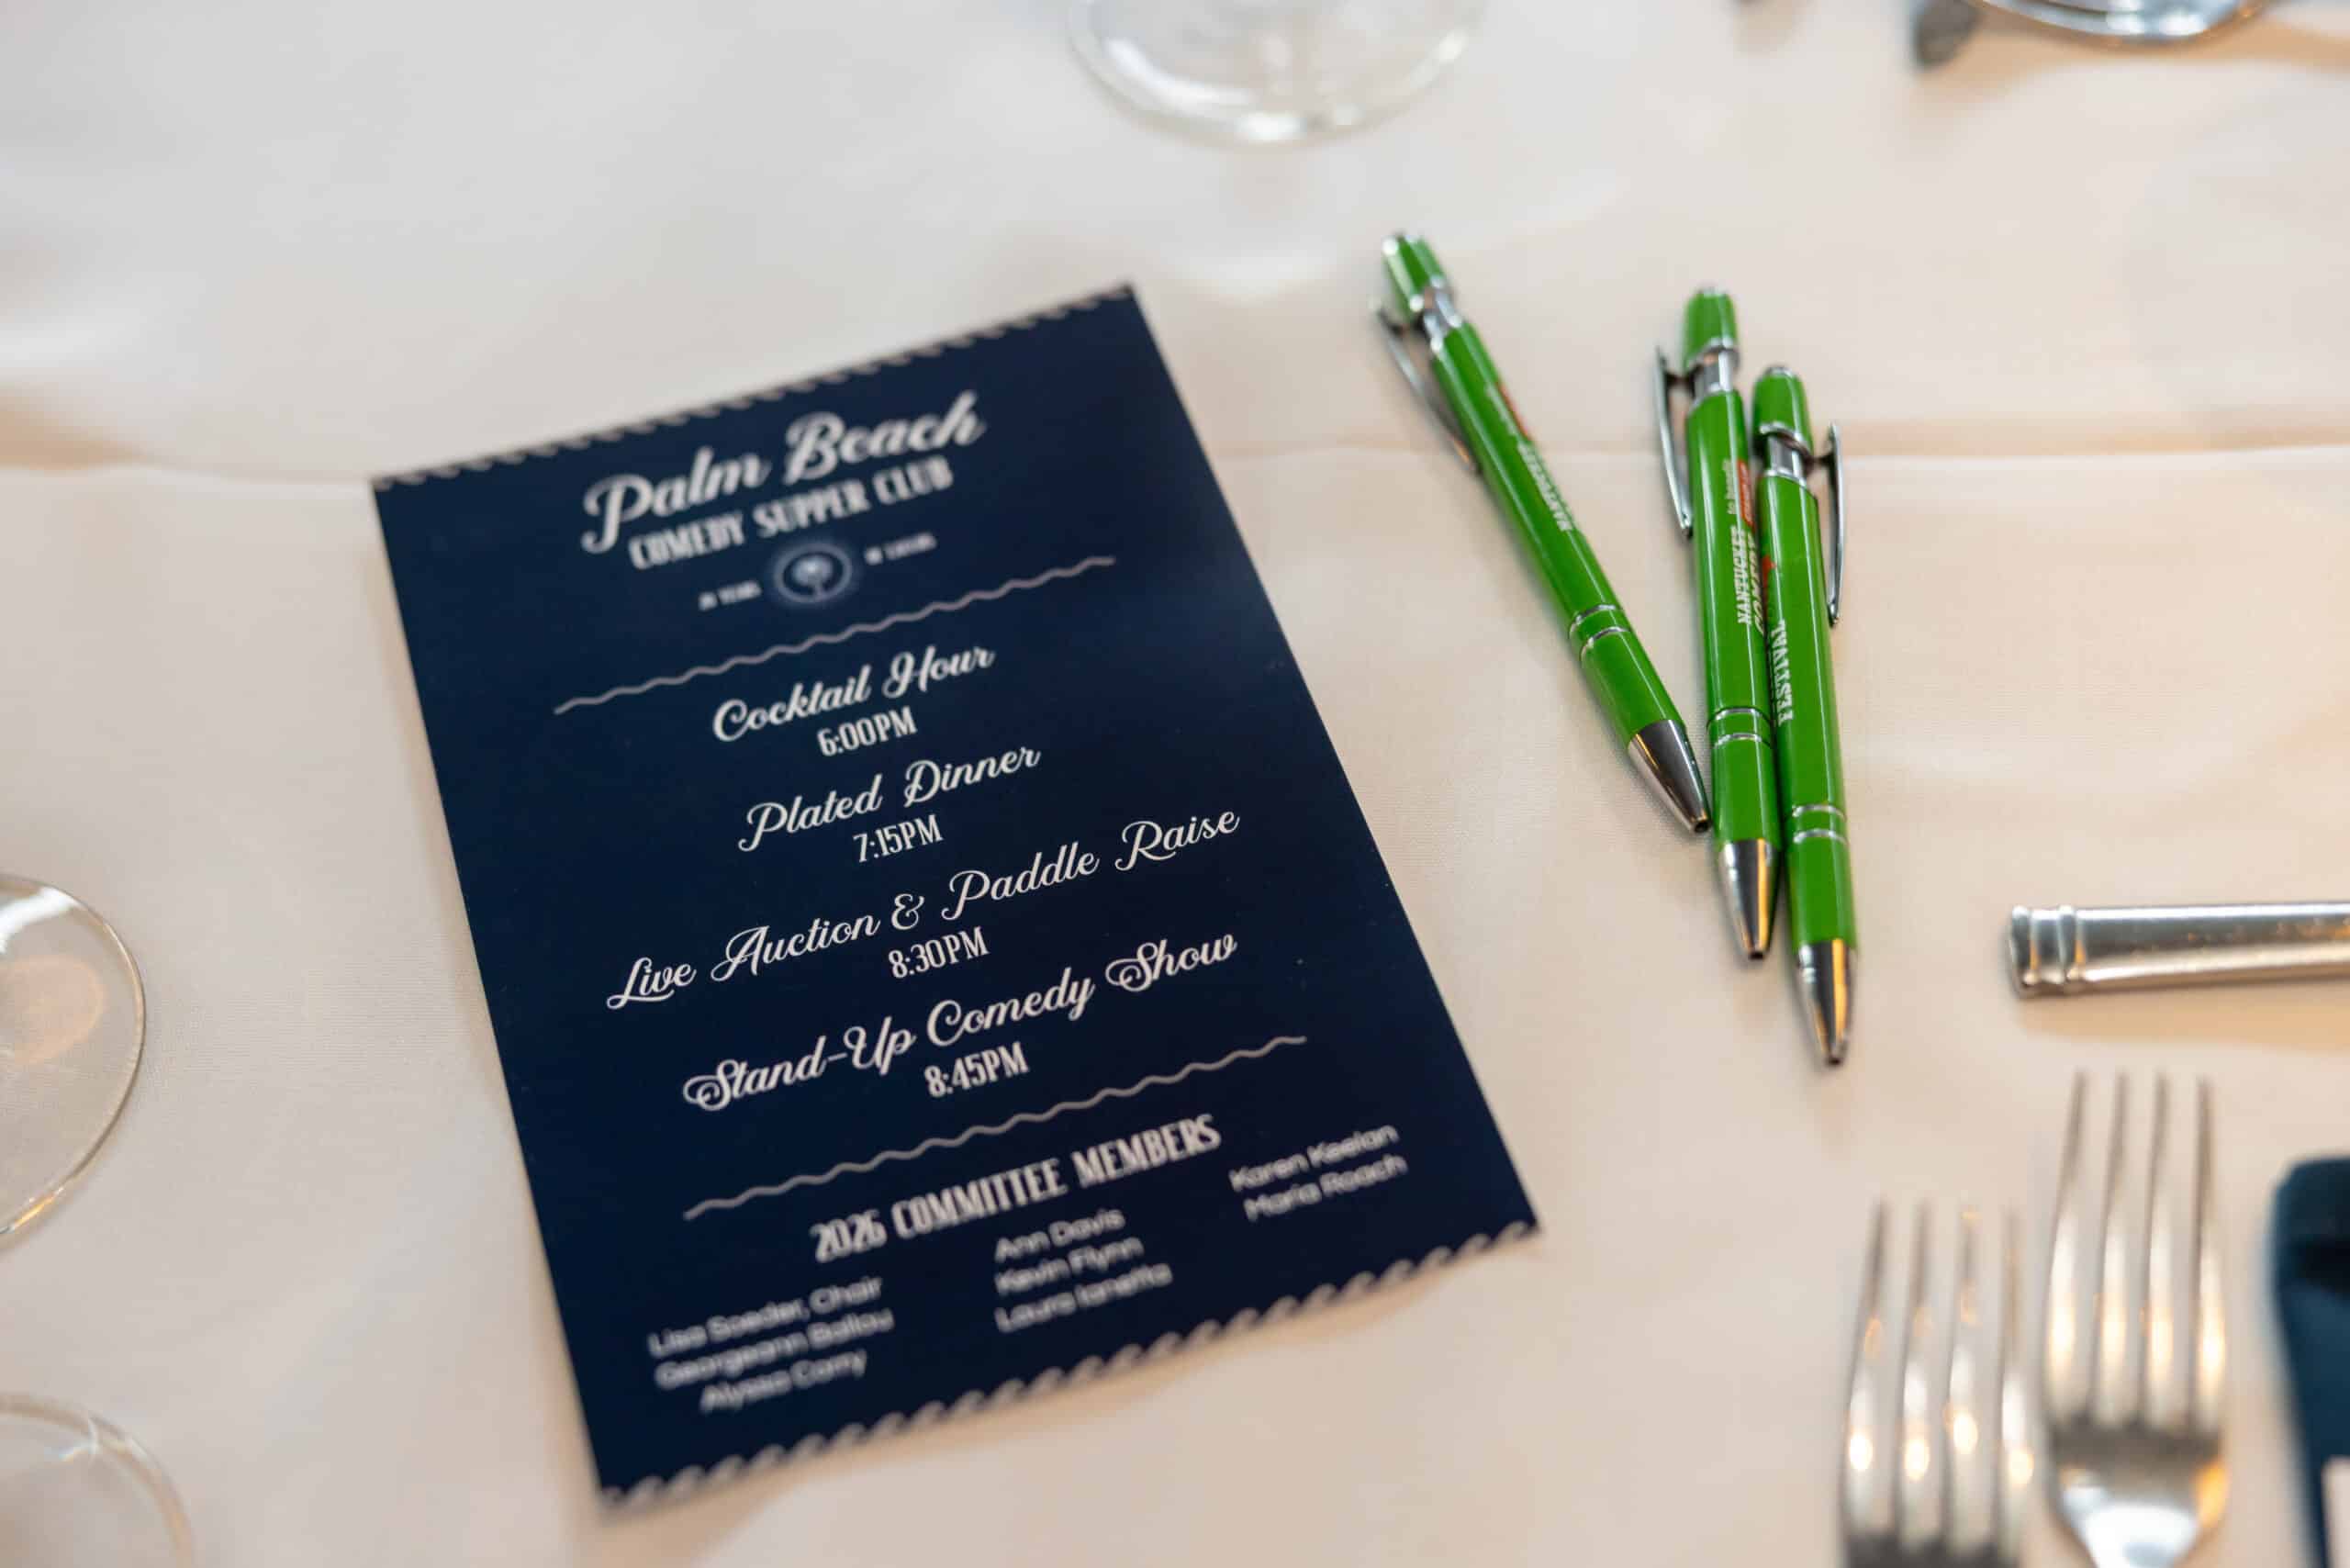 Palm Beach
COMEDY SUPPER CLUB
Cocktail Hour
6:00PM
Plated Dinner
7:15PM
Live Auction & Paddle Raise
8:30PM
Stand-Up Comedy Show
8:45PM
2026 COMMITTEE MEMBERS
Lisa Soeder, Chair
Georgeann Ballou
Alyssa Corry
Ann Davis
Kevin Flynn
Laura Ianetta
Karen Keelan
Maria Roach
NANTUCKET
NANTUCKET
to benefit
FESTIVAL